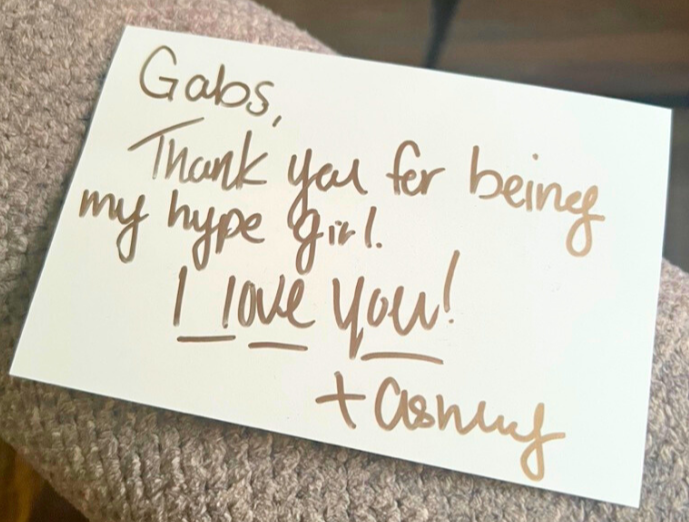 Gabs,
Thank you for being
my hype girl.
I love you!
+ Ashley